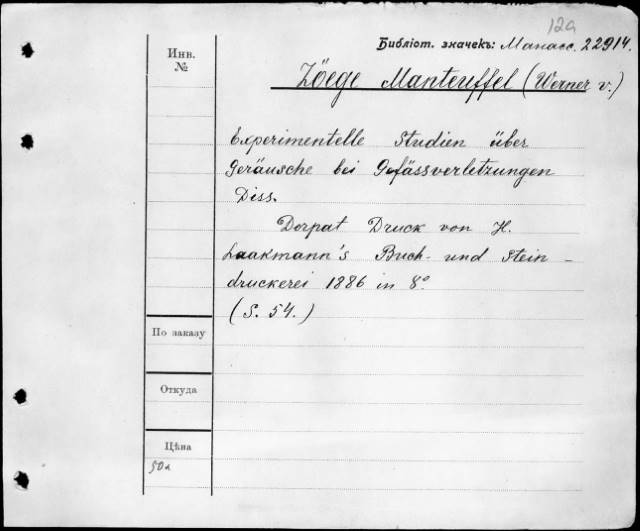 12a
Библіот. значекъ: Манасс. 22914.
Инв.
№
Zöege Manteuffel (Werner v.)
Experimentelle Studien über
Geräusche bei Gefässverletzungen
Diss.
Dorpat Druck von H.
Laakmann's Buch- und Stein-
druckerei 1886 in 8°
(S. 54.)
По заказу
Откуда
Цѣна